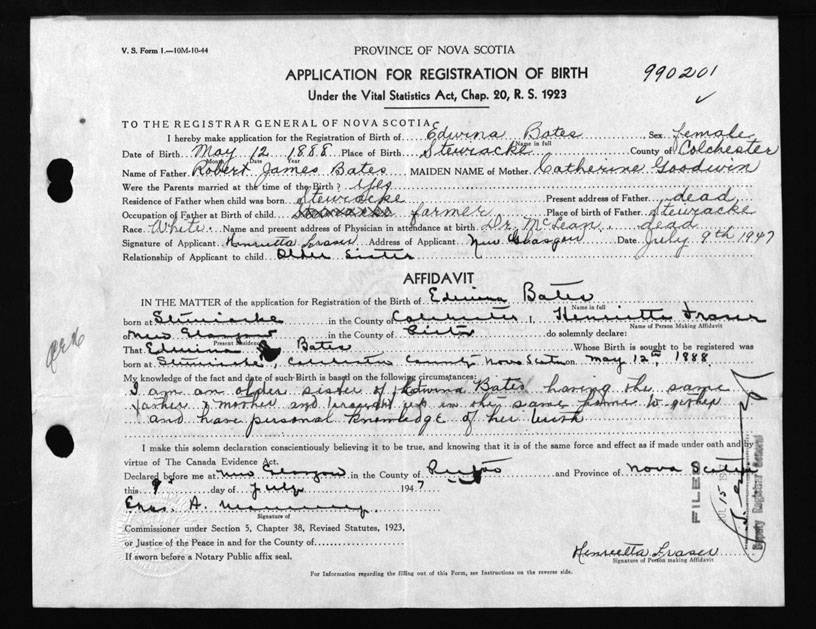 V. S. Form 1.—10M-10-44
PROVINCE OF NOVA SCOTIA
990201
APPLICATION FOR REGISTRATION OF BIRTH
Under the Vital Statistics Act, Chap. 20, R. S. 1923
TO THE REGISTRAR GENERAL OF NOVA SCOTIA
I hereby make application for the Registration of Birth of Edwina Bates Sex female
Name in full
Date of Birth May 12 1888 Place of Birth Stewiacke County of Colchester
Month Date Year
Name of Father Robert James Bates MAIDEN NAME of Mother Catherine Goodwin
Were the Parents married at the time of the Birth? yes
Residence of Father when child was born Stewiacke Present address of Father dead
Occupation of Father at Birth of child farmer Place of birth of Father Stewiacke
Race White Name and present address of Physician in attendance at birth Dr. McLean, dead
Signature of Applicant Henrietta Fraser Address of Applicant New Glasgow Date July 9th 1947
Relationship of Applicant to child Older Sister
AFFIDAVIT
IN THE MATTER of the application for Registration of the Birth of Edwina Bates
Name in full
born at Stewiacke in the County of Colchester I, Henrietta Fraser
Name of Person Making Affidavit
of New Glasgow in the County of Pictou do solemnly declare:
Present Residence
That Edwina Bates Whose Birth is sought to be registered was
born at Stewiacke, Colchester County Nova Scotia on May 12th 1888
My knowledge of the fact and date of such Birth is based on the following circumstances:
I am an older sister of Edwina Bates having the same
father & mother and brought up in the same home together
and have personal knowledge of her birth
I make this solemn declaration conscientiously believing it to be true, and knowing that it is of the same force and effect as if made under oath and by
virtue of The Canada Evidence Act.
Declared before me at New Glasgow in the County of Pictou and Province of Nova Scotia
this 9th day of July 1947
Chas. A.
Signature of
Commissioner under Section 5, Chapter 38, Revised Statutes, 1923,
or Justice of the Peace in and for the County of
If sworn before a Notary Public affix seal.
Henrietta Fraser
Signature of Person making Affidavit
FILED
Deputy Registrar General
For Information regarding the filling out of this Form, see Instructions on the reverse side.